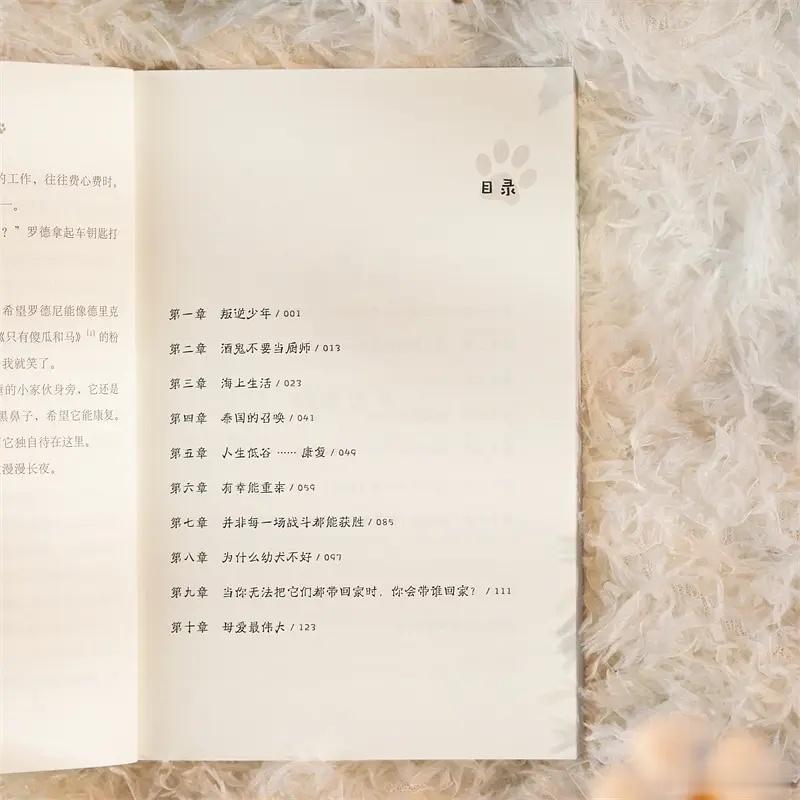 的工作，往往费心费时，
一。
？”罗德拿起车钥匙打
希望罗德尼能像德里克
《只有傻瓜和马》[1]的粉
我就笑了。
的小家伙身旁，它还是
黑鼻子，希望它能康复。
它独自待在这里。
漫漫长夜。
目录
第一章 叛逆少年 / 001
第二章 酒鬼不要当厨师 / 013
第三章 海上生活 / 023
第四章 泰国的召唤 / 041
第五章 人生低谷 …… 康复 / 049
第六章 有幸能重来 / 059
第七章 并非每一场战斗都能获胜 / 085
第八章 为什么幼犬不好 / 097
第九章 当你无法把它们都带回家时，你会带谁回家？ / 111
第十章 母爱最伟大 / 123